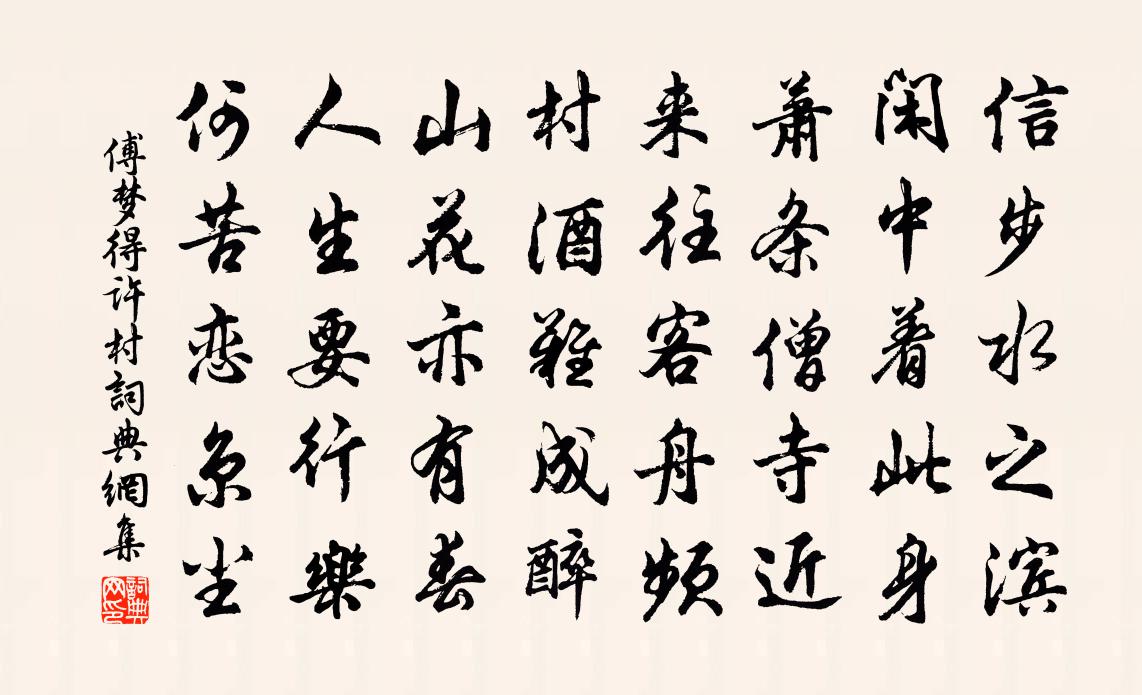 信步水之滨
闲中着此身
萧条僧寺近
来往客舟频
村酒难成醉
山花亦有春
人生要行樂
何苦恋京尘
傅梦得許村詞典網集
詞典网印